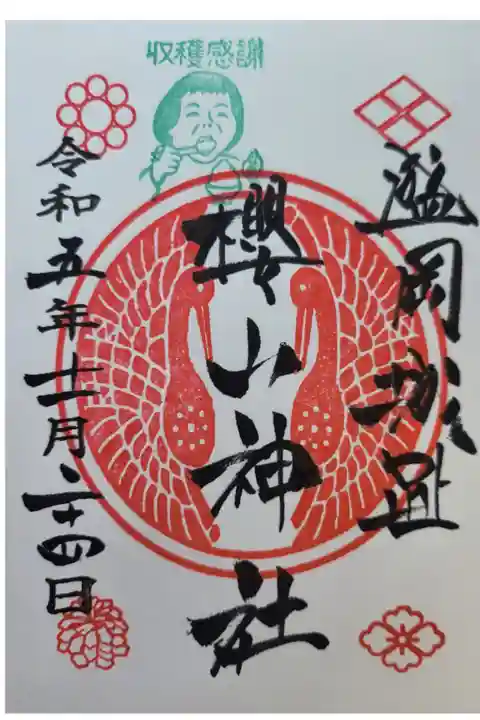 収穫感謝
盛岡城趾
櫻山神社
令和五年十一月二十四日